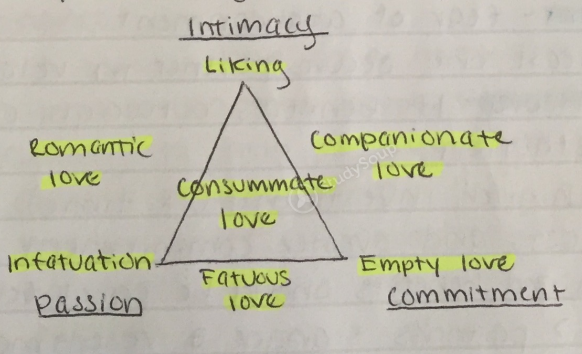 Intimacy
Liking
Romantic
love
Companionate
love
StudySoup
Consummate
love
Infatuation
Passion
Fatuous
love
Empty love
Commitment